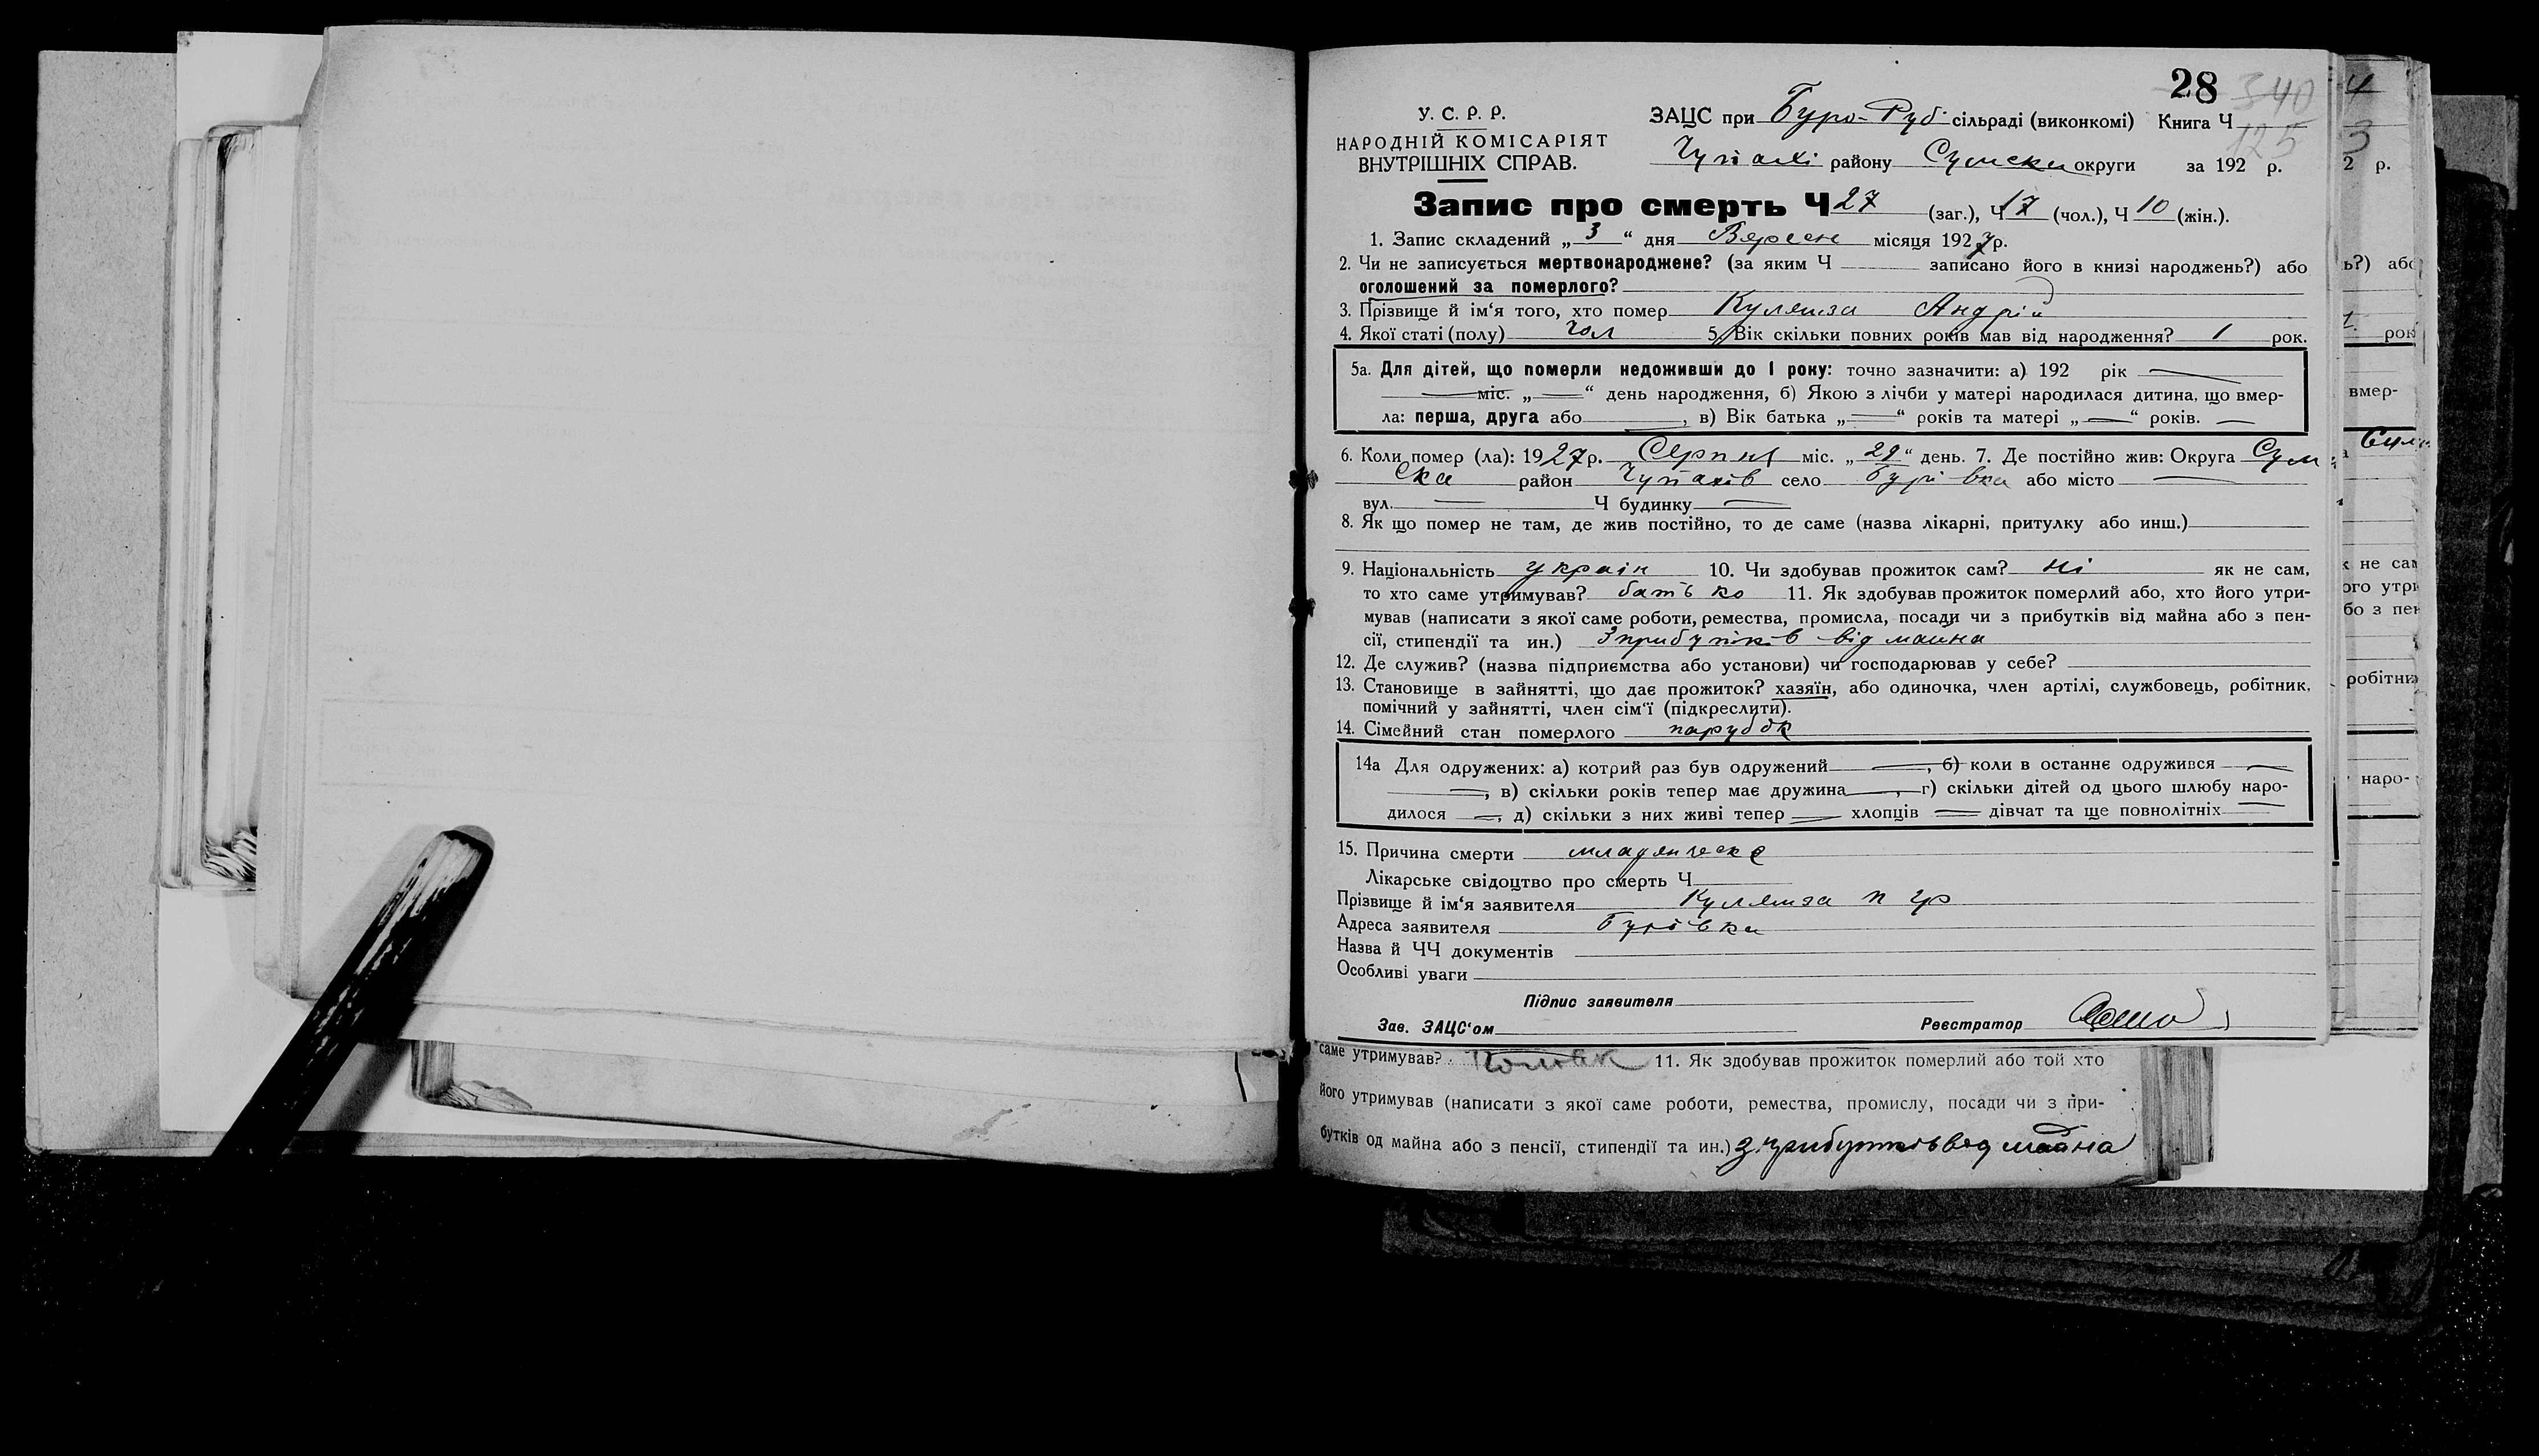 28
340
125
У. С. Р. Р.
НАРОДНІЙ КОМІСАРІЯТ
ВНУТРІШНІХ СПРАВ.
ЗАЦС при Буро-Руб сільраді (виконкомі) Книга Ч
Чупахі району Сумски округи за 192 р.
Запис про смерть Ч 27 (заг.), Ч 17 (чол.), Ч 10 (жін.).
1. Запис складений „ 3 “ дня Вересн місяця 1927 р.
2. Чи не записується мертвонароджене? (за яким Ч записано його в книзі народжень?) або
оголошений за померлого?
3. Прізвище й ім‘я того, хто помер Куляша Андрій
4. Якої статі (полу) чол 5. Вік скільки повних років мав від народження? 1 рок.
5а. Для дітей, що померли недоживши до 1 року: точно зазначити: а) 192 рік
міс. „ “ день народження, б) Якою з лічби у матері народилася дитина, що вмер-
ла: перша, друга або , в) Вік батька „ “ років та матері „ “ років.
6. Коли помер (ла): 1927 р. Серпня міс. „ 29 “ день. 7. Де постійно жив: Округа Сум
ска район Чупахів село Бурівка або місто
вул. Ч будинку
8. Як що помер не там, де жив постійно, то де саме (назва лікарні, притулку або инш.)
9. Національність україн 10. Чи здобував прожиток сам? ні як не сам,
то хто саме утримував? батько 11. Як здобував прожиток померлий або, хто його утри-
мував (написати з якої саме роботи, ремества, промисла, посади чи з прибутків від майна або з пен-
сії, стипендії та ин.) З прибутків від майна
12. Де служив? (назва підприємства або установи) чи господарював у себе?
13. Становище в зайнятті, що дає прожиток? хазяїн, або одиночка, член артілі, службовець, робітник,
помічний у зайнятті, член сім‘ї (підкреслити).
14. Сімейний стан померлого парубок
14а Для одружених: а) котрий раз був одружений , б) коли в останнє одружився
, в) скільки років тепер має дружина , г) скільки дітей од цього шлюбу наро-
дилося , д) скільки з них живі тепер хлопців дівчат та ще повнолітніх
15. Причина смерти младенческа
Лікарське свідоцтво про смерть Ч
Прізвище й ім‘я заявителя Куляша п гр
Адреса заявителя Бурівка
Назва й ЧЧ документів
Особливі уваги
Підпис заявителя
Зав. ЗАЦС‘ом Реєстратор
саме утримував? 11. Як здобував прожиток померлий або той хто
його утримував (написати з якої саме роботи, ремества, промислу, посади чи з при-
бутків од майна або з пенсії, стипендії та ин.) з прибутків від майна